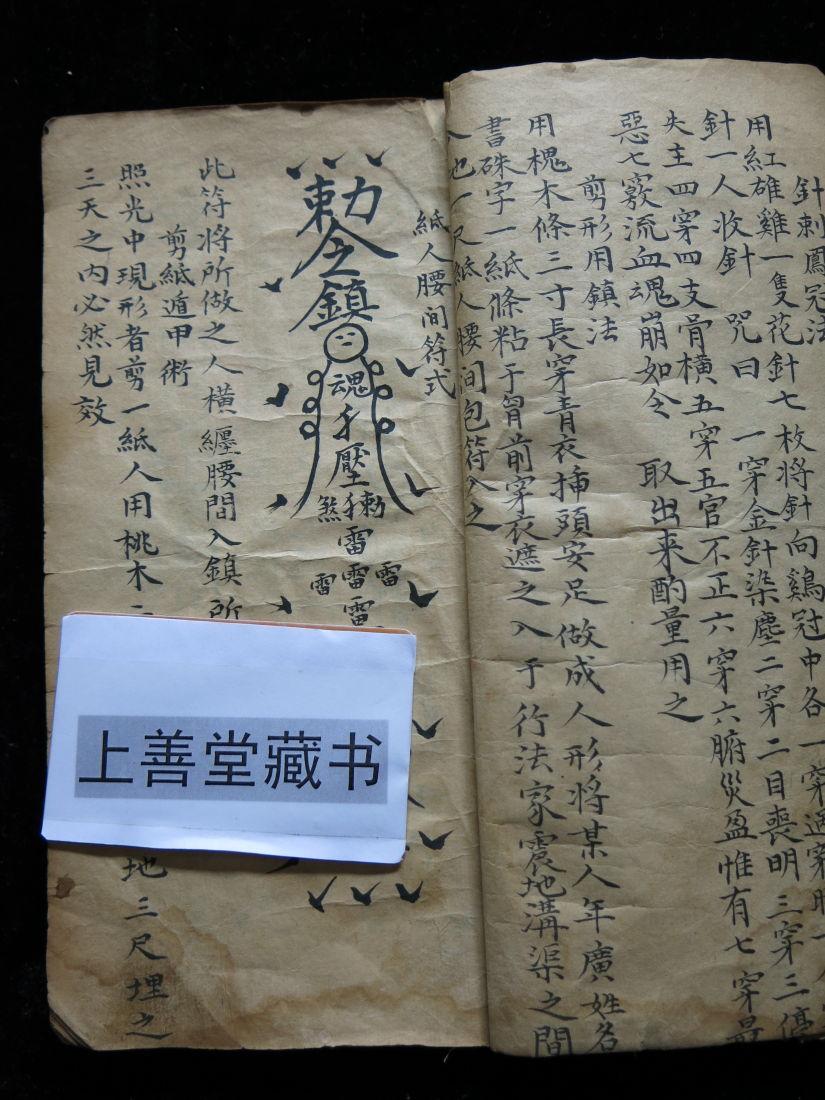 針刺鳳冠法
用紅雄雞一隻花針七枚將針向鷄冠中各一穿過穿時一人
針一人收針 咒曰 一穿金針染塵二穿二目喪明三穿三停
失主四穿四支骨橫五穿五官不正六穿六腑災盈惟有七穿最
惡七竅流血魂崩如令 取出来酌量用之
剪形用鎮法
用槐木條三寸長穿青衣揷頭安足做成人形將某人年廣姓名
書硃字一紙條粘于胷前穿衣遮之入于行法家震地溝渠之間
也一尺紙人腰间包符入之
紙人腰间符式
勅令鎮
魂
壓
煞
雷
雷雷雷
雷
此符將所做之人橫纏腰間入鎮所
剪紙遁甲術
照光中現形者剪一紙人用桃木
地三尺埋之
三天之内必然見效
上善堂藏书